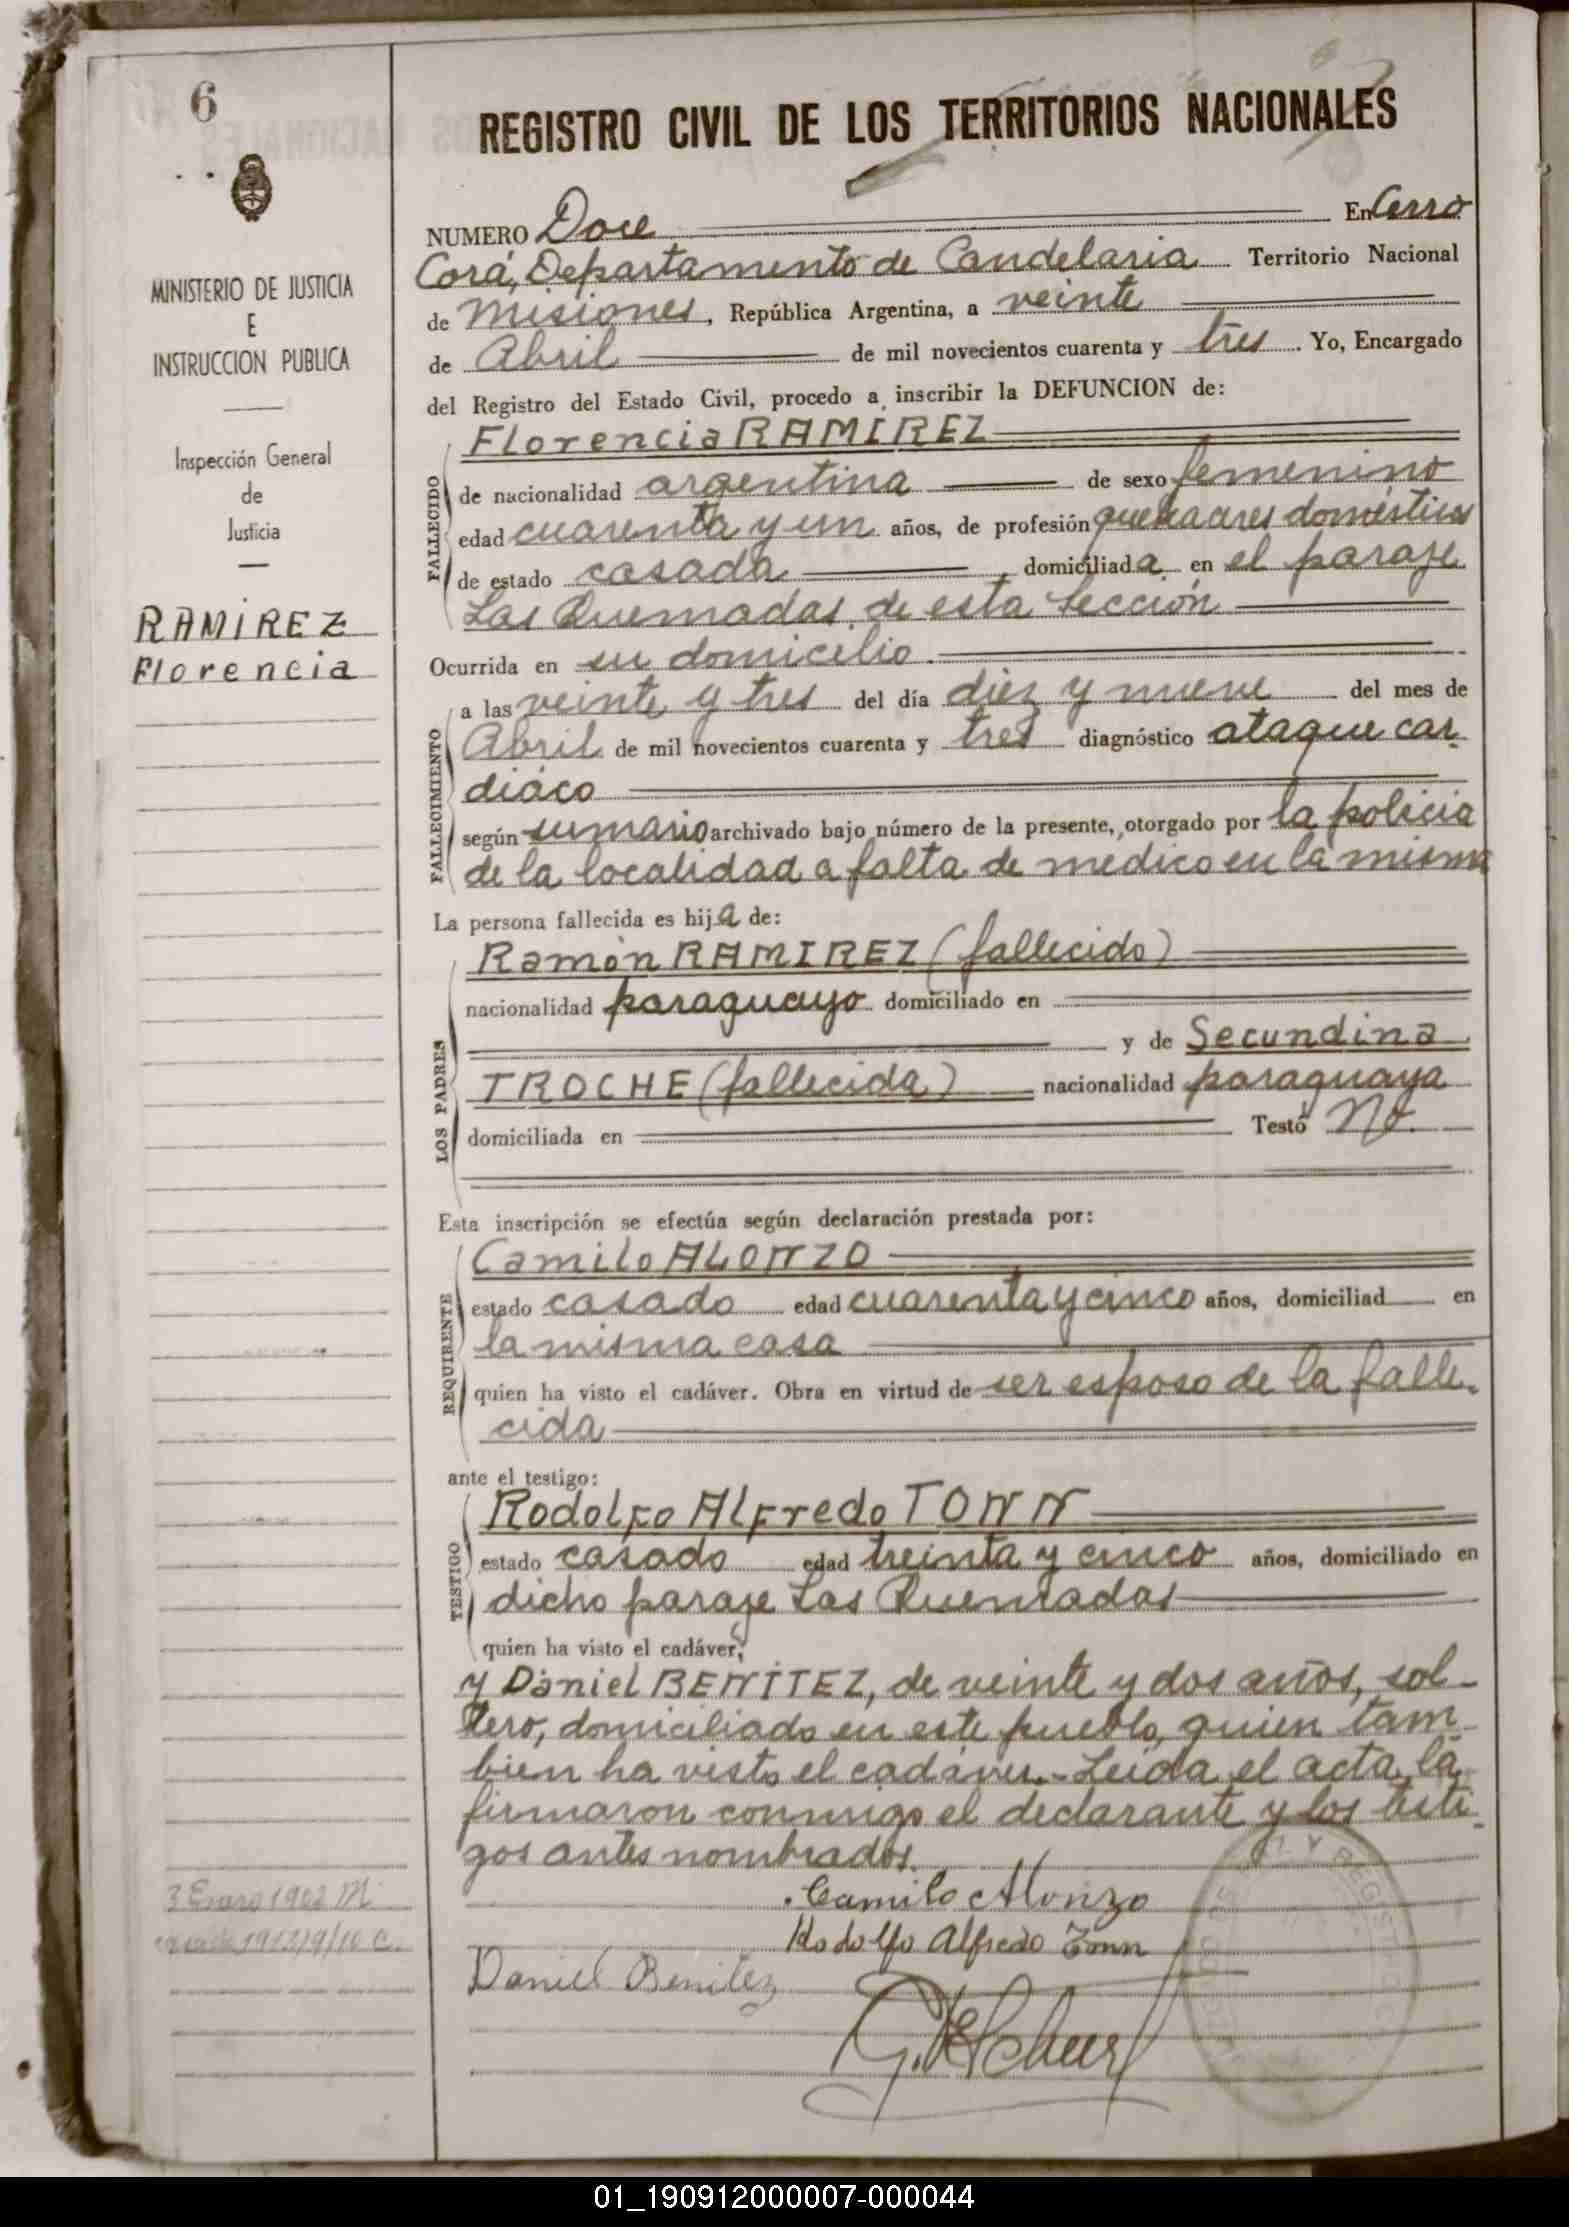 6
MINISTERIO DE JUSTICIA
E
INSTRUCCION PUBLICA
Inspección General
de
Justicia
RAMIREZ
Florencia
REGISTRO CIVIL DE LOS TERRITORIOS NACIONALES
NUMERO Doce En Cerro
Corá, Departamento de Candelaria Territorio Nacional
de Misiones, República Argentina, a veinte
de Abril de mil novecientos cuarenta y tres. Yo, Encargado
del Registro del Estado Civil, procedo a inscribir la DEFUNCION de:
FALLECIDO
Florencia RAMIREZ
de nacionalidad argentina de sexo femenino
edad cuarenta y un años, de profesión quehaceres domésticos
de estado casada domiciliada en el paraje
Las Quemadas de esta Sección
Ocurrida en su domicilio
FALLECIMIENTO
a las veinte y tres del día diez y nueve del mes de
Abril de mil novecientos cuarenta y tres diagnóstico ataque car-
diáco
según sumario archivado bajo número de la presente, otorgado por la policia
de la localidad a falta de medico en la misma
La persona fallecida es hija de:
LOS PADRES
Ramón RAMIREZ (fallecido)
nacionalidad paraguayo domiciliado en
y de Secundina
TROCHE (fallecida) nacionalidad paraguaya
domiciliada en Testó No.
Esta inscripción se efectúa según declaración prestada por:
REQUIRENTE
Camilo ALONZO
estado casado edad cuarenta y cinco años, domiciliad en
la misma casa
quien ha visto el cadáver. Obra en virtud de ser esposo de la falle-
cida
ante el testigo:
TESTIGO
Rodolfo Alfredo TONN
estado casado edad treinta y cinco años, domiciliado en
dicho paraje Las Quemadas
quien ha visto el cadáver,
y Daniel BENITEZ, de veinte y dos años, sol-
tero, domiciliado en este pueblo, quien tam-
bien ha visto el cadáver.- Leida el acta, la
firmaron conmigo el declarante y los testi-
gos antes nombrados.
Camilo Alonzo
Rodolfo Alfredo Tonn
Daniel Benitez
3 Enero 1902 M
01_190912000007-000044